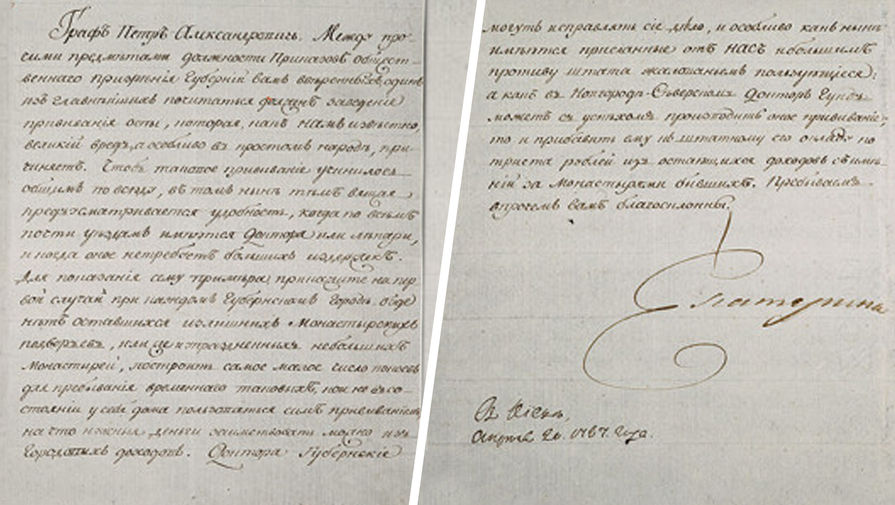 Графъ Петръ Александровичь. Между про-
чими предметами должности Приказовъ общест-
веннаго призрѣнія Губерній вамъ ввѣренныхъ, одинъ
изъ главнѣйшихъ почитаться долженъ заведеніе
прививанія оспы, которая, какъ намъ извѣстно,
великій вредъ, а особливо въ простомъ народѣ, при-
чиняетъ. Чтобъ таковое прививаніе учинилось
общимъ по всюду, въ томъ нынѣ тѣмъ вящая
предъусматривается удобность, когда по всѣмъ
почти уѣздамъ имѣются Доктора или лѣкари,
и когда оное нетребуетъ большихъ издержекъ.
Для показанія сему примѣра, прикажите на пер-
вой случай при каждомъ Губернскомъ Городѣ, буде
нѣтъ оставшихся излишнихъ Монастырскихъ
подворьевъ, или неиздраздненныхъ небольшихъ
Монастырей, построить самое малое число покоевъ
для пребыванія временнаго таковыхъ, кои не въ со-
стояніи у себя дома пользоваться симъ прививаніемъ
на что нужныя деньги заимствовать можно изъ
Городскихъ доходовъ. Доктора Губернскіе
могутъ исправлять сіе дѣло, и особливо какъ нынѣ
имѣются присланные отъ насъ небольшимъ
противу штата жалованьемъ пользующіеся:
а какъ въ Новгородѣ-Сѣверскомъ Докторъ Гунъ
можетъ съ успѣхомъ производить оное прививаніе,
то и прибавить ему къ штатному его окладу по
триста рублей изъ остающихся доходовъ съ имѣ-
ній за Монастырями бывшихъ. Пребываемъ
впрочемъ вамъ благосклонны.
Екатерина
Въ Кіевѣ,
Апрѣля 20. 1787. года.